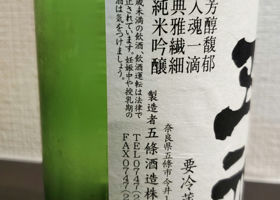 芳醇馥郁
入魂一滴
典雅繊細
純米吟醸
歳未満の飲酒、飲酒運転は法律で
止されています。妊娠中や授乳期の
酒は気をつけましょう。
要冷蔵
奈良県五條市今井1
製造者 五條酒造株
TEL0747(2
FAX0747(2